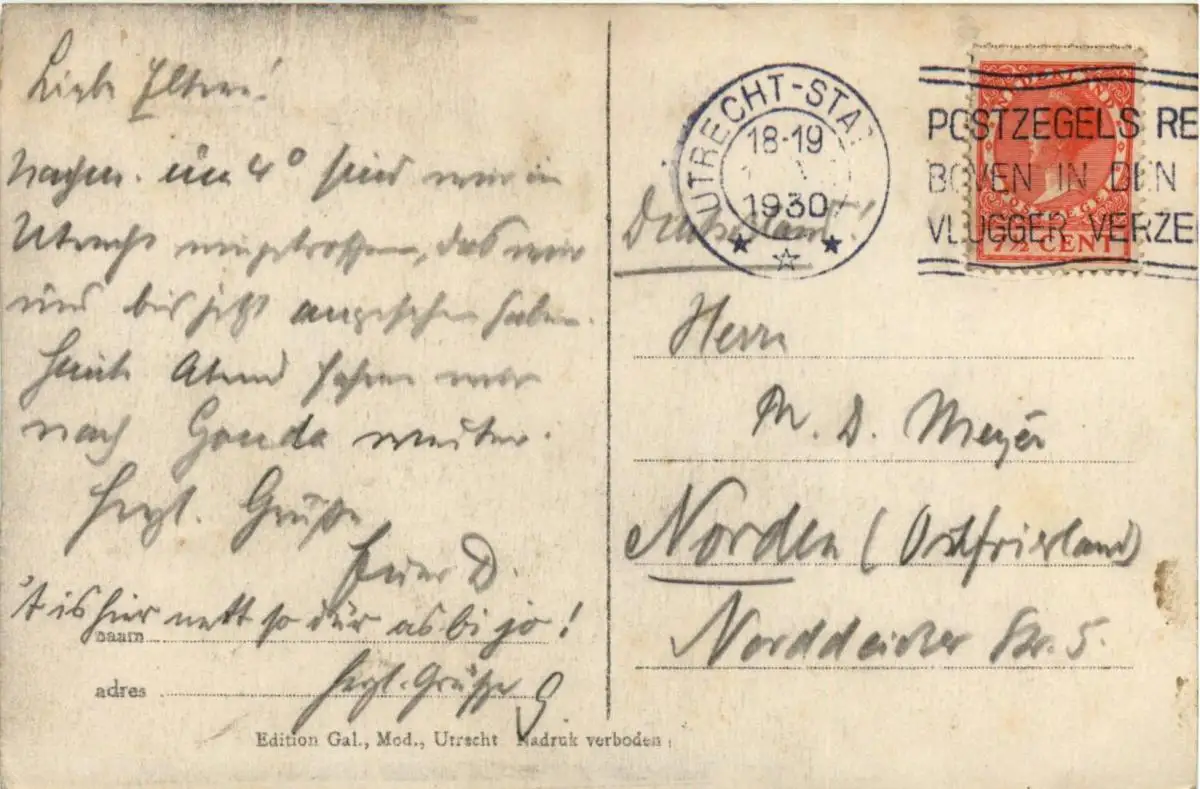 Liebe Eltern!
Nachm. um 4° sind wir in
Utrecht eingetroffen, das wir
uns bis jetzt angesehen haben.
Heute Abend fahren wir
nach Gouda weiter.
Herzl. Grüße
Euer D.
't is hier nett so dür as bi jo!
naam
adres
Herzl. Grüße
Edition Gal., Mod., Utrecht Nadruk verboden
UTRECHT-STA
18-19
1930
POSTZEGELS RE
BOVEN IN DEN
VLUGGER VERZE
NEDERLAND
POSTZEGEL
7½ CENT
Deutschland!
Herrn
M. D. Meyer
Norden (Ostfriesland)
Norddeicher Str. 5.